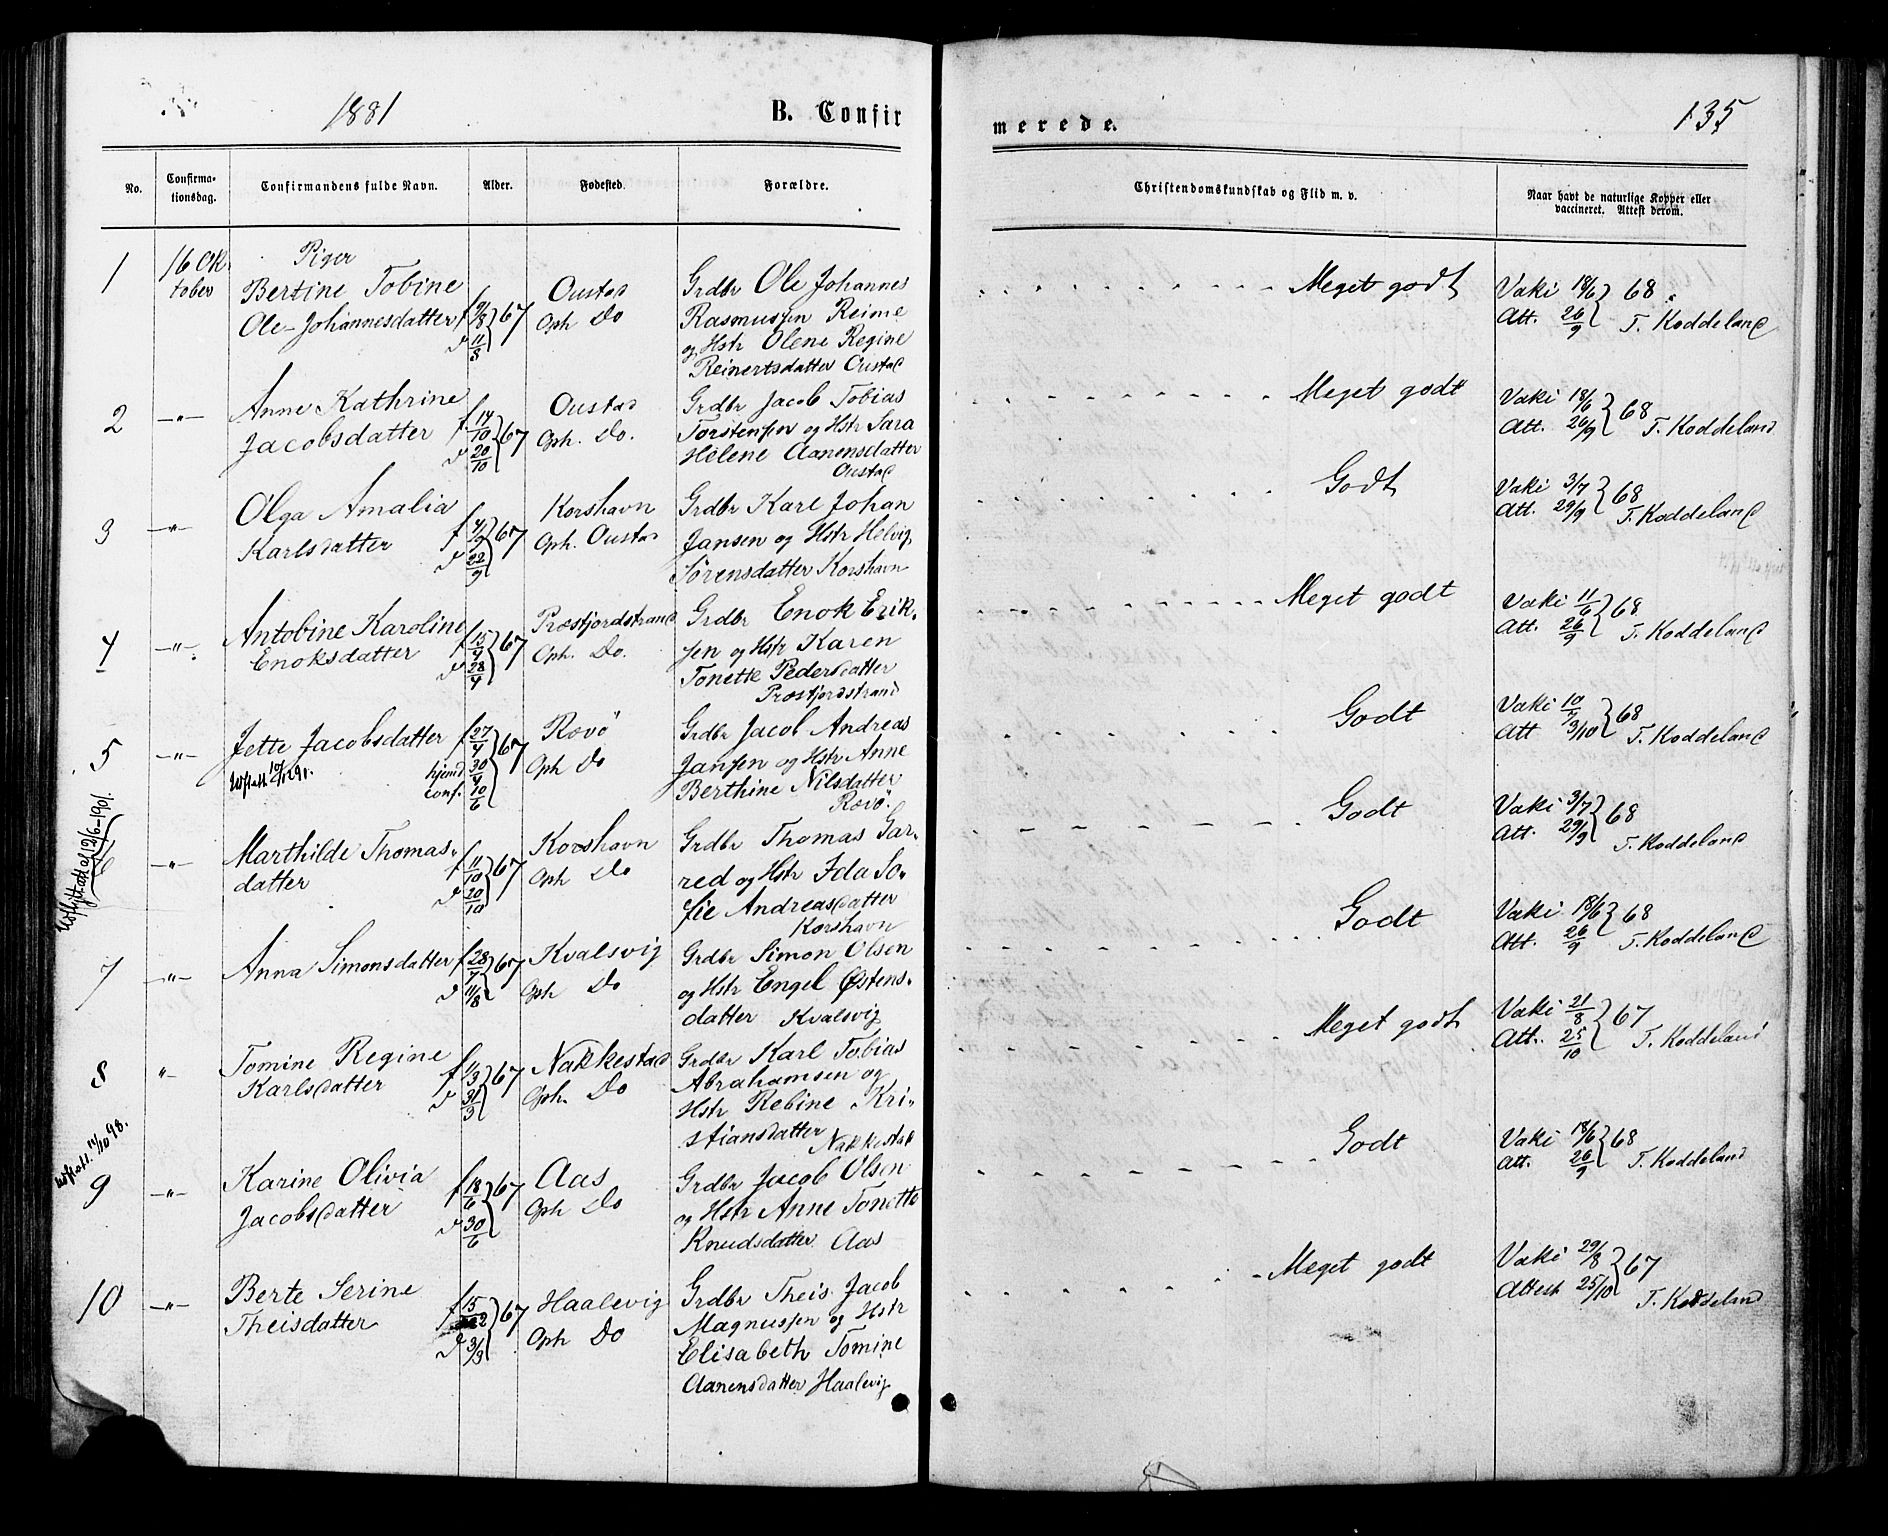 1881
B. Confir
merede.
135
No.
Confirma-
tionsdag.
Confirmandens fulde Navn.
Alder.
Fødested.
Forældre.
Christendomskundskab og Flid m. v.
Naar havt de naturlige Kopper eller
vaccineret. Attest derom.
Piger
1
16 Ok-
tober
Bertine Tobine
Ole-Johannesdatter
f 9/8 67
d 11/8
Oustad
Oph Do
Grdbr Ole Johannes
Rasmussen Reime
og Hstr Olene Regine
Reinertsdatter Oustad
Meget godt
Vaki 18/6 68
Att. 26/9 T. Koddeland
2
-"-
Anne Kathrine
Jacobsdatter
f 14/10 67
d 20/10
Oustad
Oph. Do.
Grdbr Jacob Tobias
Torstensen og Hstr Sara
Helene Aanensdatter
Oustad
Meget godt
Vaki 18/6 68
Att. 26/9 T. Koddeland
3
-"-
Olga Amalia
Karlsdatter
f 4/9 67
d 22/9
Korshavn
Oph. Oustad
Grdbr Karl Johan
Jansen og Hstr Helvig
Sørensdatter Korshavn
Godt
Vaki 3/7 68
Att. 29/9 T. Koddeland
4
-"-
Antobine Karoline
Enoksdatter
f 15/4 67
d 28/4
Præstfjordstrand
Oph. Do.
Grdbr Enok Erik-
sen og Hstr Karen
Tonette Pedersdatter
Præstfjordstrand
Meget godt
Vaki 11/6 68
Att. 26/9 T. Koddeland
5
-"-
Jette Jacobsdatter
f 27/4 67
hjemd 30/4
conf. 10/6
Rævö
Oph Do
Grdbr Jacob Andreas
Jansen og Hstr Anne
Berthine Nilsdatter
Rævö.
Godt
Vaki 10/7 68
Att 3/10 T. Koddeland
6
-"-
Marthilde Thomas-
datter
f 11/10 67
d 20/10
Korshavn
Oph Do
Grdbr Thomas Jar-
red og Hstr Ida So-
fie Andreasdatter
Korshavn
Godt
Vaki 3/7 68
Att. 29/9 T. Koddeland
7
-"-
Anna Simonsdatter
f 28/7 67
d 11/8
Kvalsvig
Oph Do
Grdbr Simon Olsen
og Hstr Engel Østens-
datter Kvalsvig
Godt
Vaki 18/6 68
Att. 26/9 T. Koddeland
8
"-
Tomine Regine
Karlsdatter
f 11/3 67
d 31/3
Nakkestad
Oph. Do
Grdbr Karl Tobias
Abrahamsen og
Hstr Rebine Kri-
stiansdatter
Nakkestad
Meget godt
Vaki 21/8 67
Att. 25/10 T. Koddeland
9
-"-
Karine Olivia
Jacobsdatter
f 18/6 67
d 30/6
Aas
Oph Do
Grdbr Jacob Olsen
og Hstr Anne Tonette
Knudsdatter Aas
Godt
Vaki 18/6 68
Att. 26/9 T. Koddeland
10
-"-
Berte Serine
Theisdatter
f 15/2 67
d 3/3
Haalevig
Oph Do
Grdbr Theis Jacob
Magnussen og Hstr
Elisabeth Tomine
Aanensdatter Haalevig
Meget godt
Vaki 29/8 67
Attest 25/10 T. Koddeland